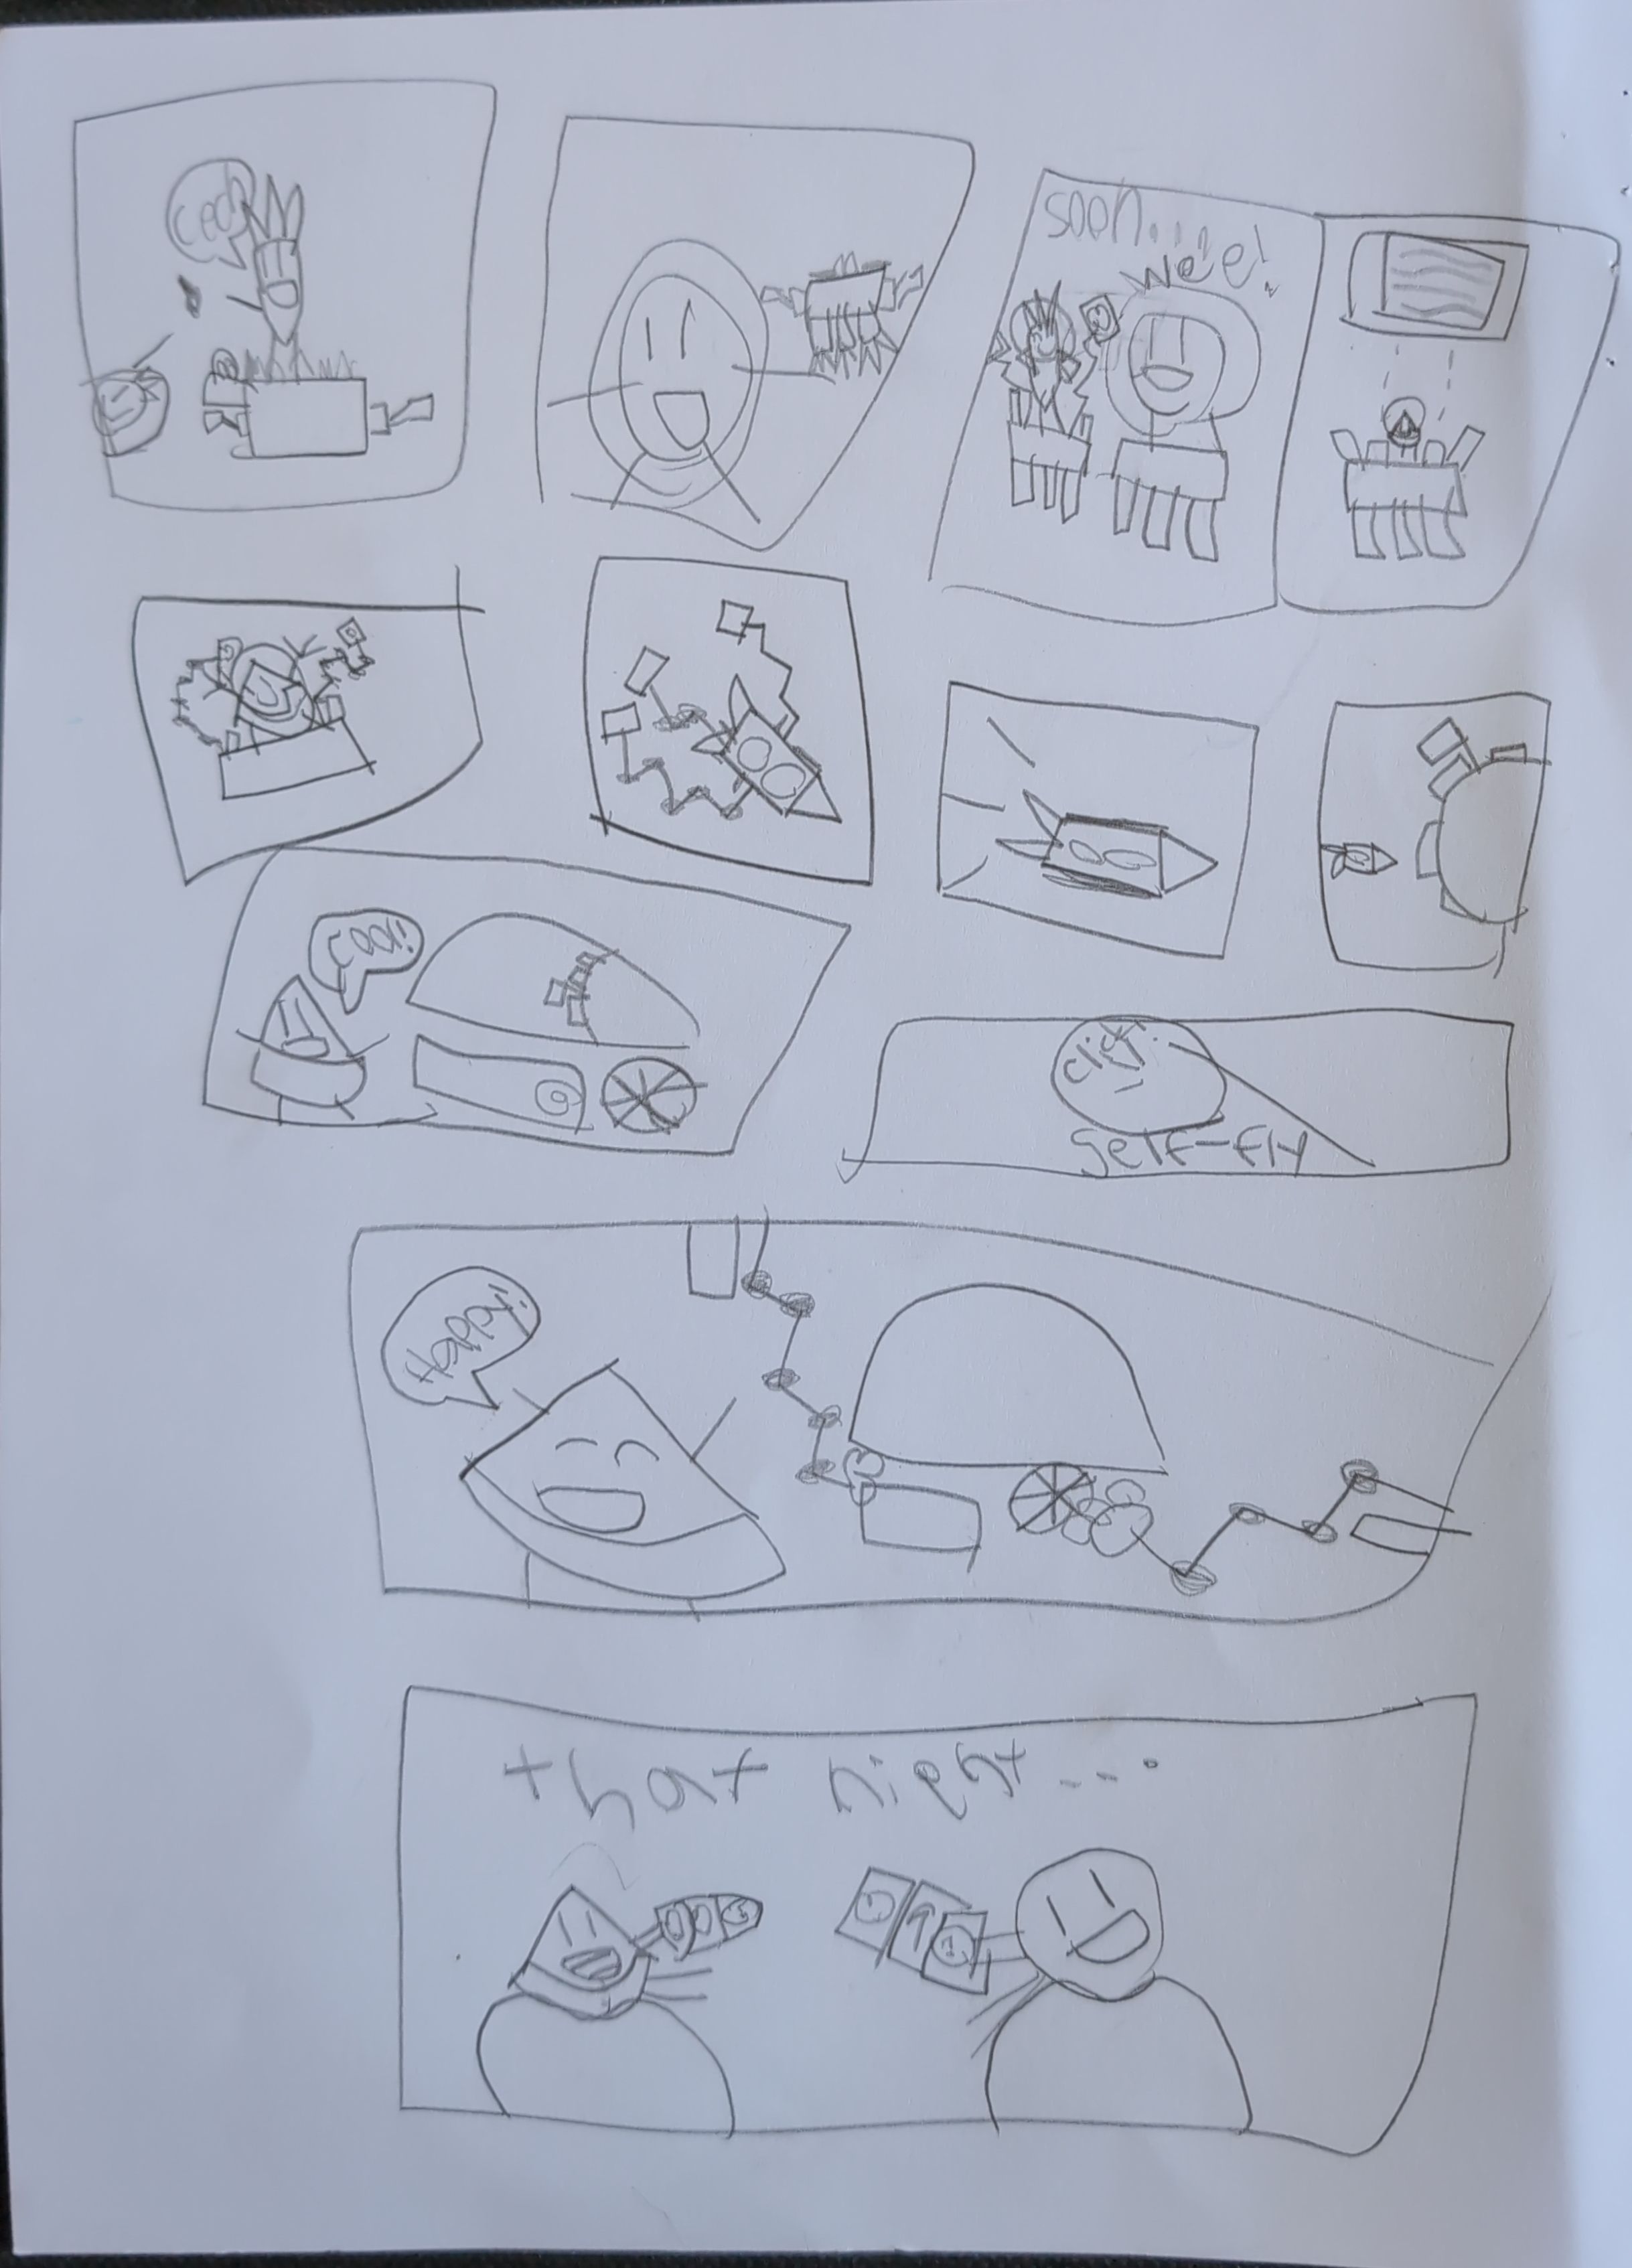 soon....
wee!
cool
click
self-fly
Happy!
that night....